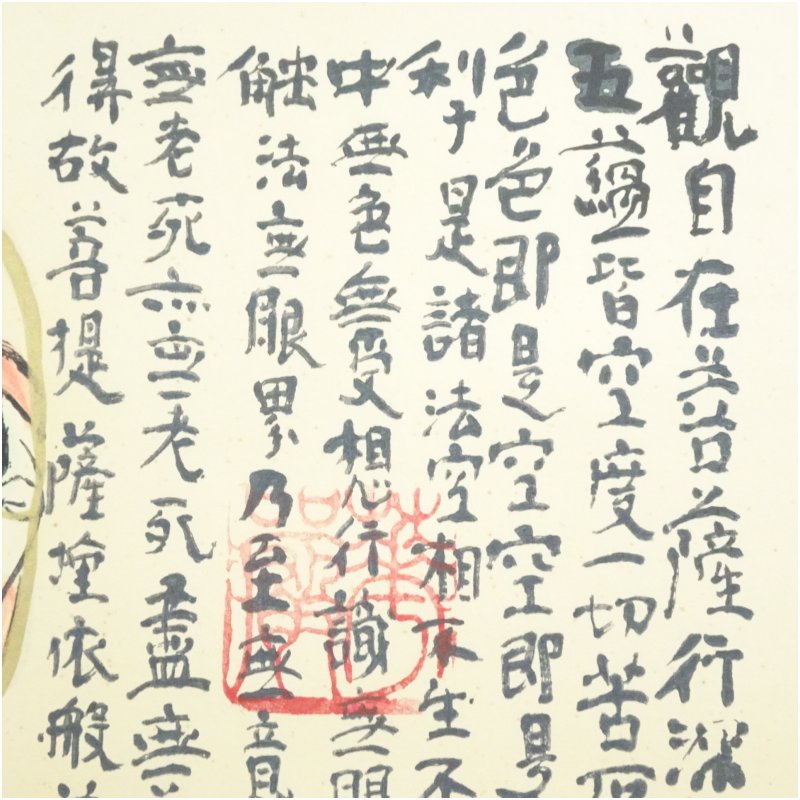 觀自在菩薩行深
五蘊皆空度一切苦厄
色色即是空空即是
利子是諸法空相不生不
中無色無受想行識無眼
觸法無眼界乃至無意
無老死亦無老死盡無
得故菩提薩埵依般